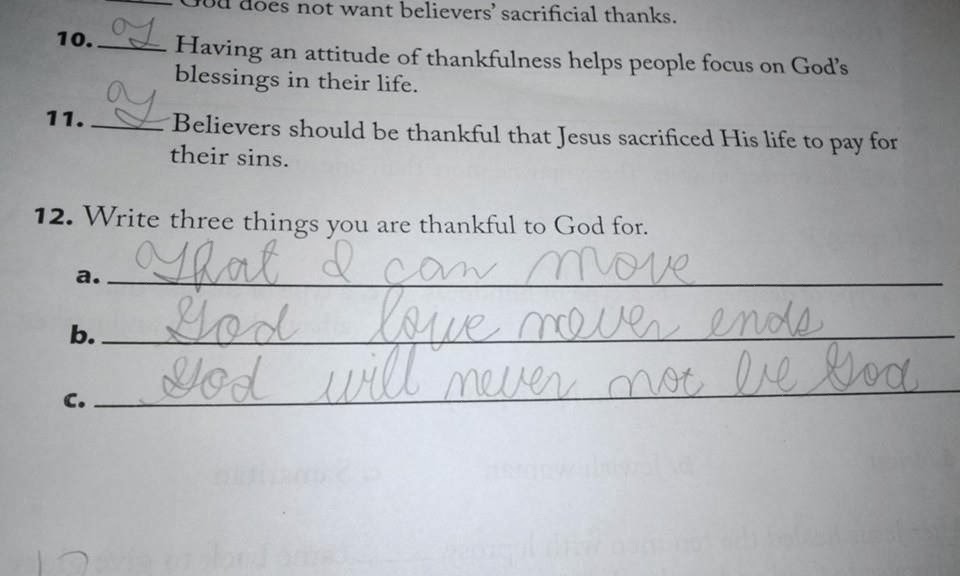 God does not want believers' sacrificial thanks.
10. T Having an attitude of thankfulness helps people focus on God's
blessings in their life.
11. T Believers should be thankful that Jesus sacrificed His life to pay for
their sins.
12. Write three things you are thankful to God for.
a. That I can move
b. God love never ends
c. God will never not be God